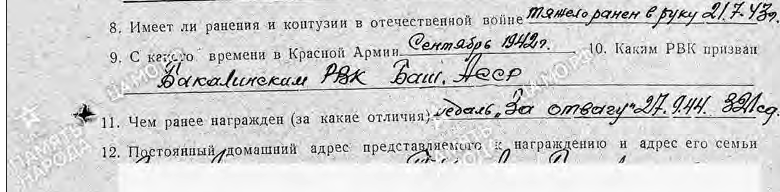 8. Имеет ли ранения и контузии в отечественной войне тяжело ранен в руку 21.7.43г.
9. С какого времени в Красной Армии Сентябрь 1942г. 10. Каким РВК призван
Бакалинским РВК Баш. АССР
11. Чем ранее награжден (за какие отличия) медаль „За отвагу" 27.9.44. 321 сд.
12. Постоянный домашний адрес представляемого к награждению и адрес его семьи
ПАМЯТЬ НАРОДА